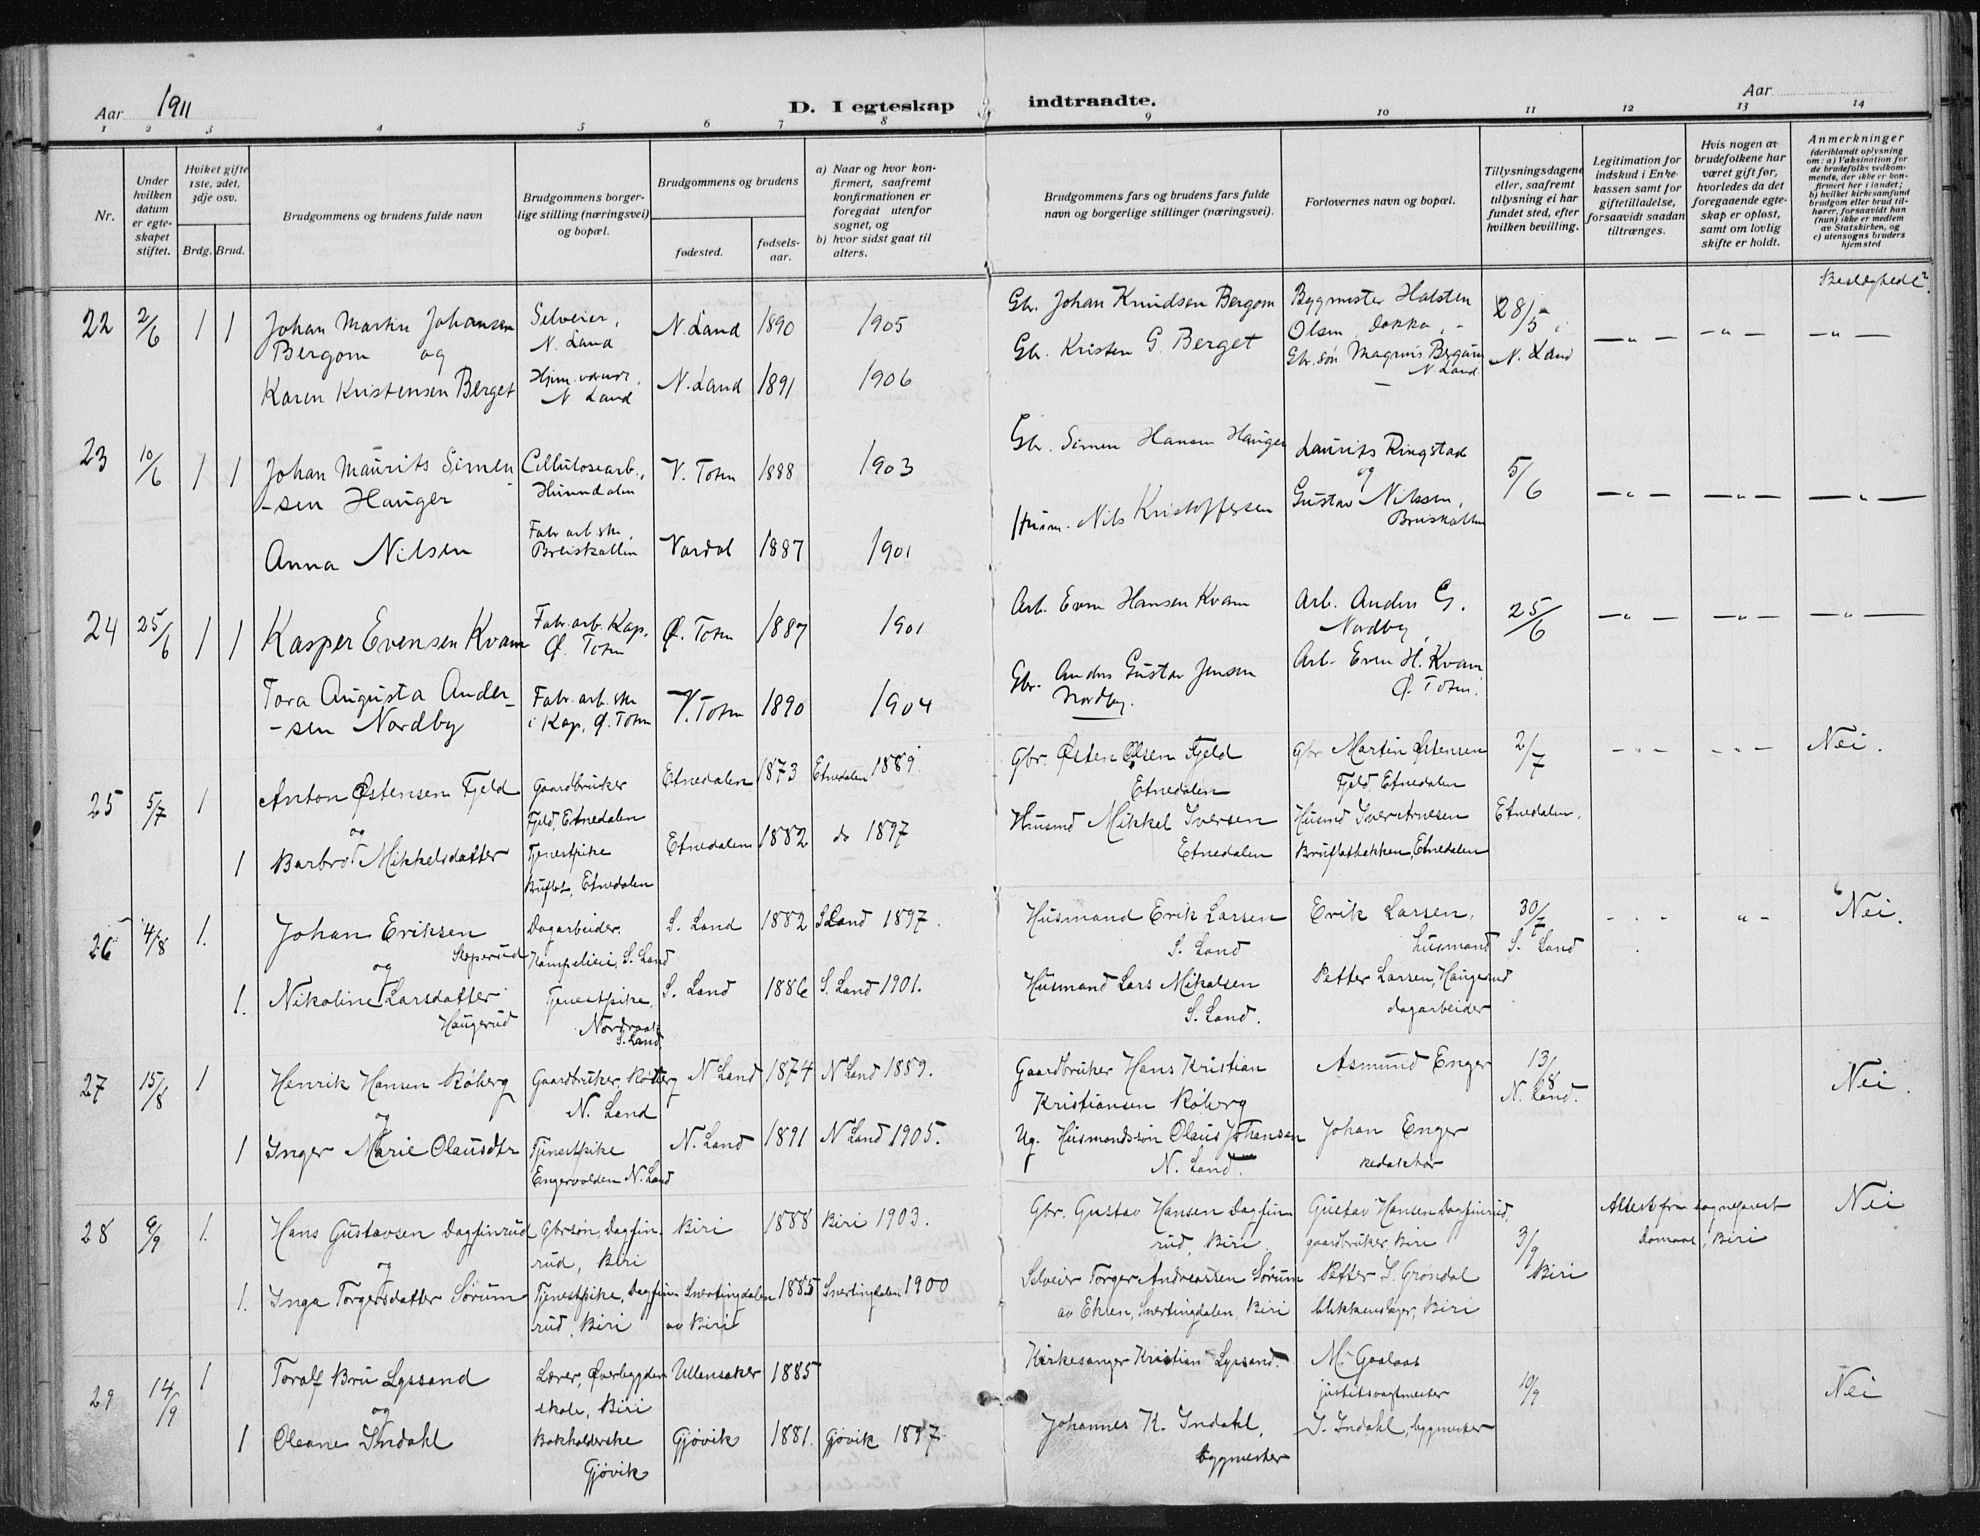 Aar 1911
D. I egteskap indtraadte.
Aar
1 2 3 4 5 6 7 8 9 10 11 12 13 14
Nr.
Under hvilken datum er egteskapet stiftet.
Hviket gifte 1ste, 2det, 3dje osv.
Brdg. Brud.
Brudgommens og brudens fulde navn
Brudgommens borgerlige stilling (næringsvei) og bopæl.
Brudgommens og brudens
fødested.
fødselsaar.
a) Naar og hvor konfirmert, saafremt konfirmationen er foregaat utenfor sognet, og
b) hvor sidst gaat til alters.
Brudgommens fars og brudens fars fulde navn og borgerlige stillinger (næringsvei).
Forlovernes navn og bopæl.
Tillysningsdagene eller, saafremt tillysning ei har fundet sted, efter hvilken bevilling.
Legitimation for indskud i Enkekassen samt for giftetilladelse, forsaavidt saadan tiltrænges.
Hvis nogen av brudefolkene har været gift før, hvorledes da det foregaaende egteskap er opløst, samt om lovlig skifte er holdt.
Anmerkninger
(deriblandt oplysning om: a) Vaksination for de brudefolks vedkommende, der ikke er konfirmert her i landet; b) hvilket kirkesamfund brudgom eller brud tilhører, forsaavidt han (hun) ikke er medlem av Statskirken, og c) utensogns bruders hjemsted
Beslegtede?
22 2/6 1 1 Johan Martin Johansen Selveier, N. Land 1890 1905 Gbr. Johan Knudsen Bergom Bygmester Halsten 28/5 i
Bergom og N. Land Olsen Dokka, N. Land
Karen Kristensen Berget N. Land N. Land 1891 1906 Gbr. Kristen G. Berget Gbr.søn Magnus Bergum N Land
23 10/6 1 1 Johan Maurits Simen Cellulosearb., V. Toten 1888 1903 Gbr. Simen Hansen Hauger Laurits Ringstad 5/6
-sen Hauger Hunndalen og
Anna Nilsen Fabr. arb.ske, Breiskallen Vardal 1887 1901 Husm. Nils Kristoffersen Gustav Nilssen, Breiskallen
24 25/6 1 1 Kasper Evensen Kvam Fabr. arb. Kap, Ø. Toten Ø. Toten 1887 1901 Arb. Even Hansen Kvam Arb. Anders G. Nordby, 25/6
Tora Augusta Ander- Fabr. arb. ske V. Toten 1890 1904 Gbr. Anders Gustav Jensen Arb. Even H. Kvam
-sen Nordby i Kap, Ø. Toten Nordby. Ø. Toten.
25 5/7 1 Anton Østensen Fjeld Gaardbruker Etnedalen 1873 Etnedalen 1889. Gbr. Østen Olsen Fjeld Gbr Martin Østensen 2/7 Nei.
og Fjeld, Etnedalen Etnedalen Fjeld, Etnedalen
1 Barbro Mikkelsdatter Tjenestpike Etnedalen 1882 do 1897 Husmd Mikkel Iversen Husmd Iver Arnesen Etnedalen.
Buflat, Etnedalen Etnedalen Bruflatbakken, Etnedalen
26 4/8 1. Johan Eriksen Dagarbeider. S. Land 1882 S Land 1897. Husmand Erik Larsen Erik Larsen, 30/7 Nei.
og S. Land S. Land husmand S. Land
1. Nikoline Larsdatter Tjenestpike, S. Land 1886 S. Land 1901. Husmand Lars Mikalsen Petter Larsen, Haugerud
Haugerud S. Land S. Land. dagarbeider
27 15/8 1 Henrik Hansen Røberg Gaardbruker, Røberg N Land 1874 N Land 1889. Gaardbruker Hans Kristian Asmund Enger 13/8 Nei.
og N. Land Kristiansen Røberg N. Land.
1 Inger Marie Olausdtr Tjenestpike N. Land 1891 N Land 1905. Ug. Husmandssøn Olaus Johansen Johan Enger
Engervolden N. Land N. Land. redaktør
28 6/9 1. Hans Gustavsen Dagfinrud Gbrsøn, Dagfin- Biri 1888 Biri 1903. Gbr. Gustav Hansen Dagfin- Gustav Hansen Dagfinrud, 3/9 Attest fra sogneprest Nei
og rud, Biri rud, Biri gaardbruker, Biri Biri
1. Inga Torgersdatter Sørum Tjenestpike, Dagfin- Snertingdalen 1885 Snertingdalen 1900 Selveier Torger Andreassen Sørum Petter S. Grøndal
rud, Biri av Biri av Ekren, Snertingdalen, Biri blikkenslager, Biri
29 14/9 1 Toralf Bru Lyssand Lærer, Øverbygden Ullensaker 1885 Kirkesanger Kristian Lyssand. M. Gaalaas 10/9 Nei
og skole, Biri justitsvagtmester
1 Oleane Indahl Bokholderske Gjøvik 1881. Gjøvik 1897 Johannes K. Indahl, J. Indahl, bygmester
Gjøvik bygmester